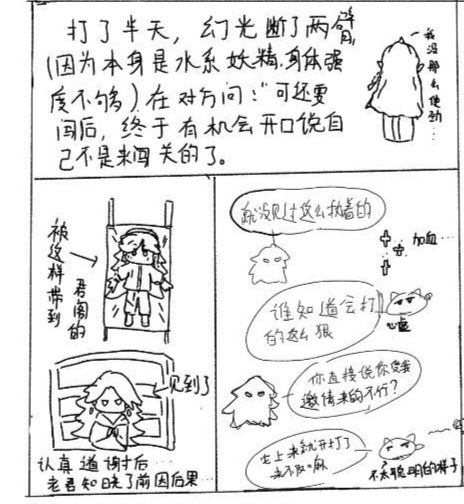 打了半天，幻光断了两臂
(因为本身是水系妖精，身体强
度不够)在对方问："可还要
闯后，终于有机会开口说自
己不是来闯关的了。
我没那么使劲…
被这样带到
君阁的
见到了
认真道谢后…
老君知晓了前因后果…
就没见过这么执着的
加血…
谁知道会打
的这么狠
心虚
你直接说你受我
邀请来的不行?
去上来就开打了
来不及嘛
不太聪明的样子